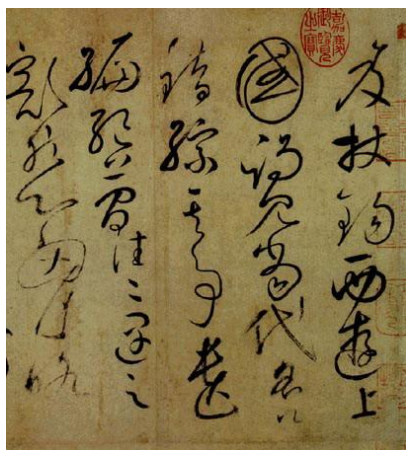 笈杖錫西遊上
國謁見當代名公
錯綜其事遺
編絕簡往々遇之
豁然心胸略
嘉慶御覽之寶